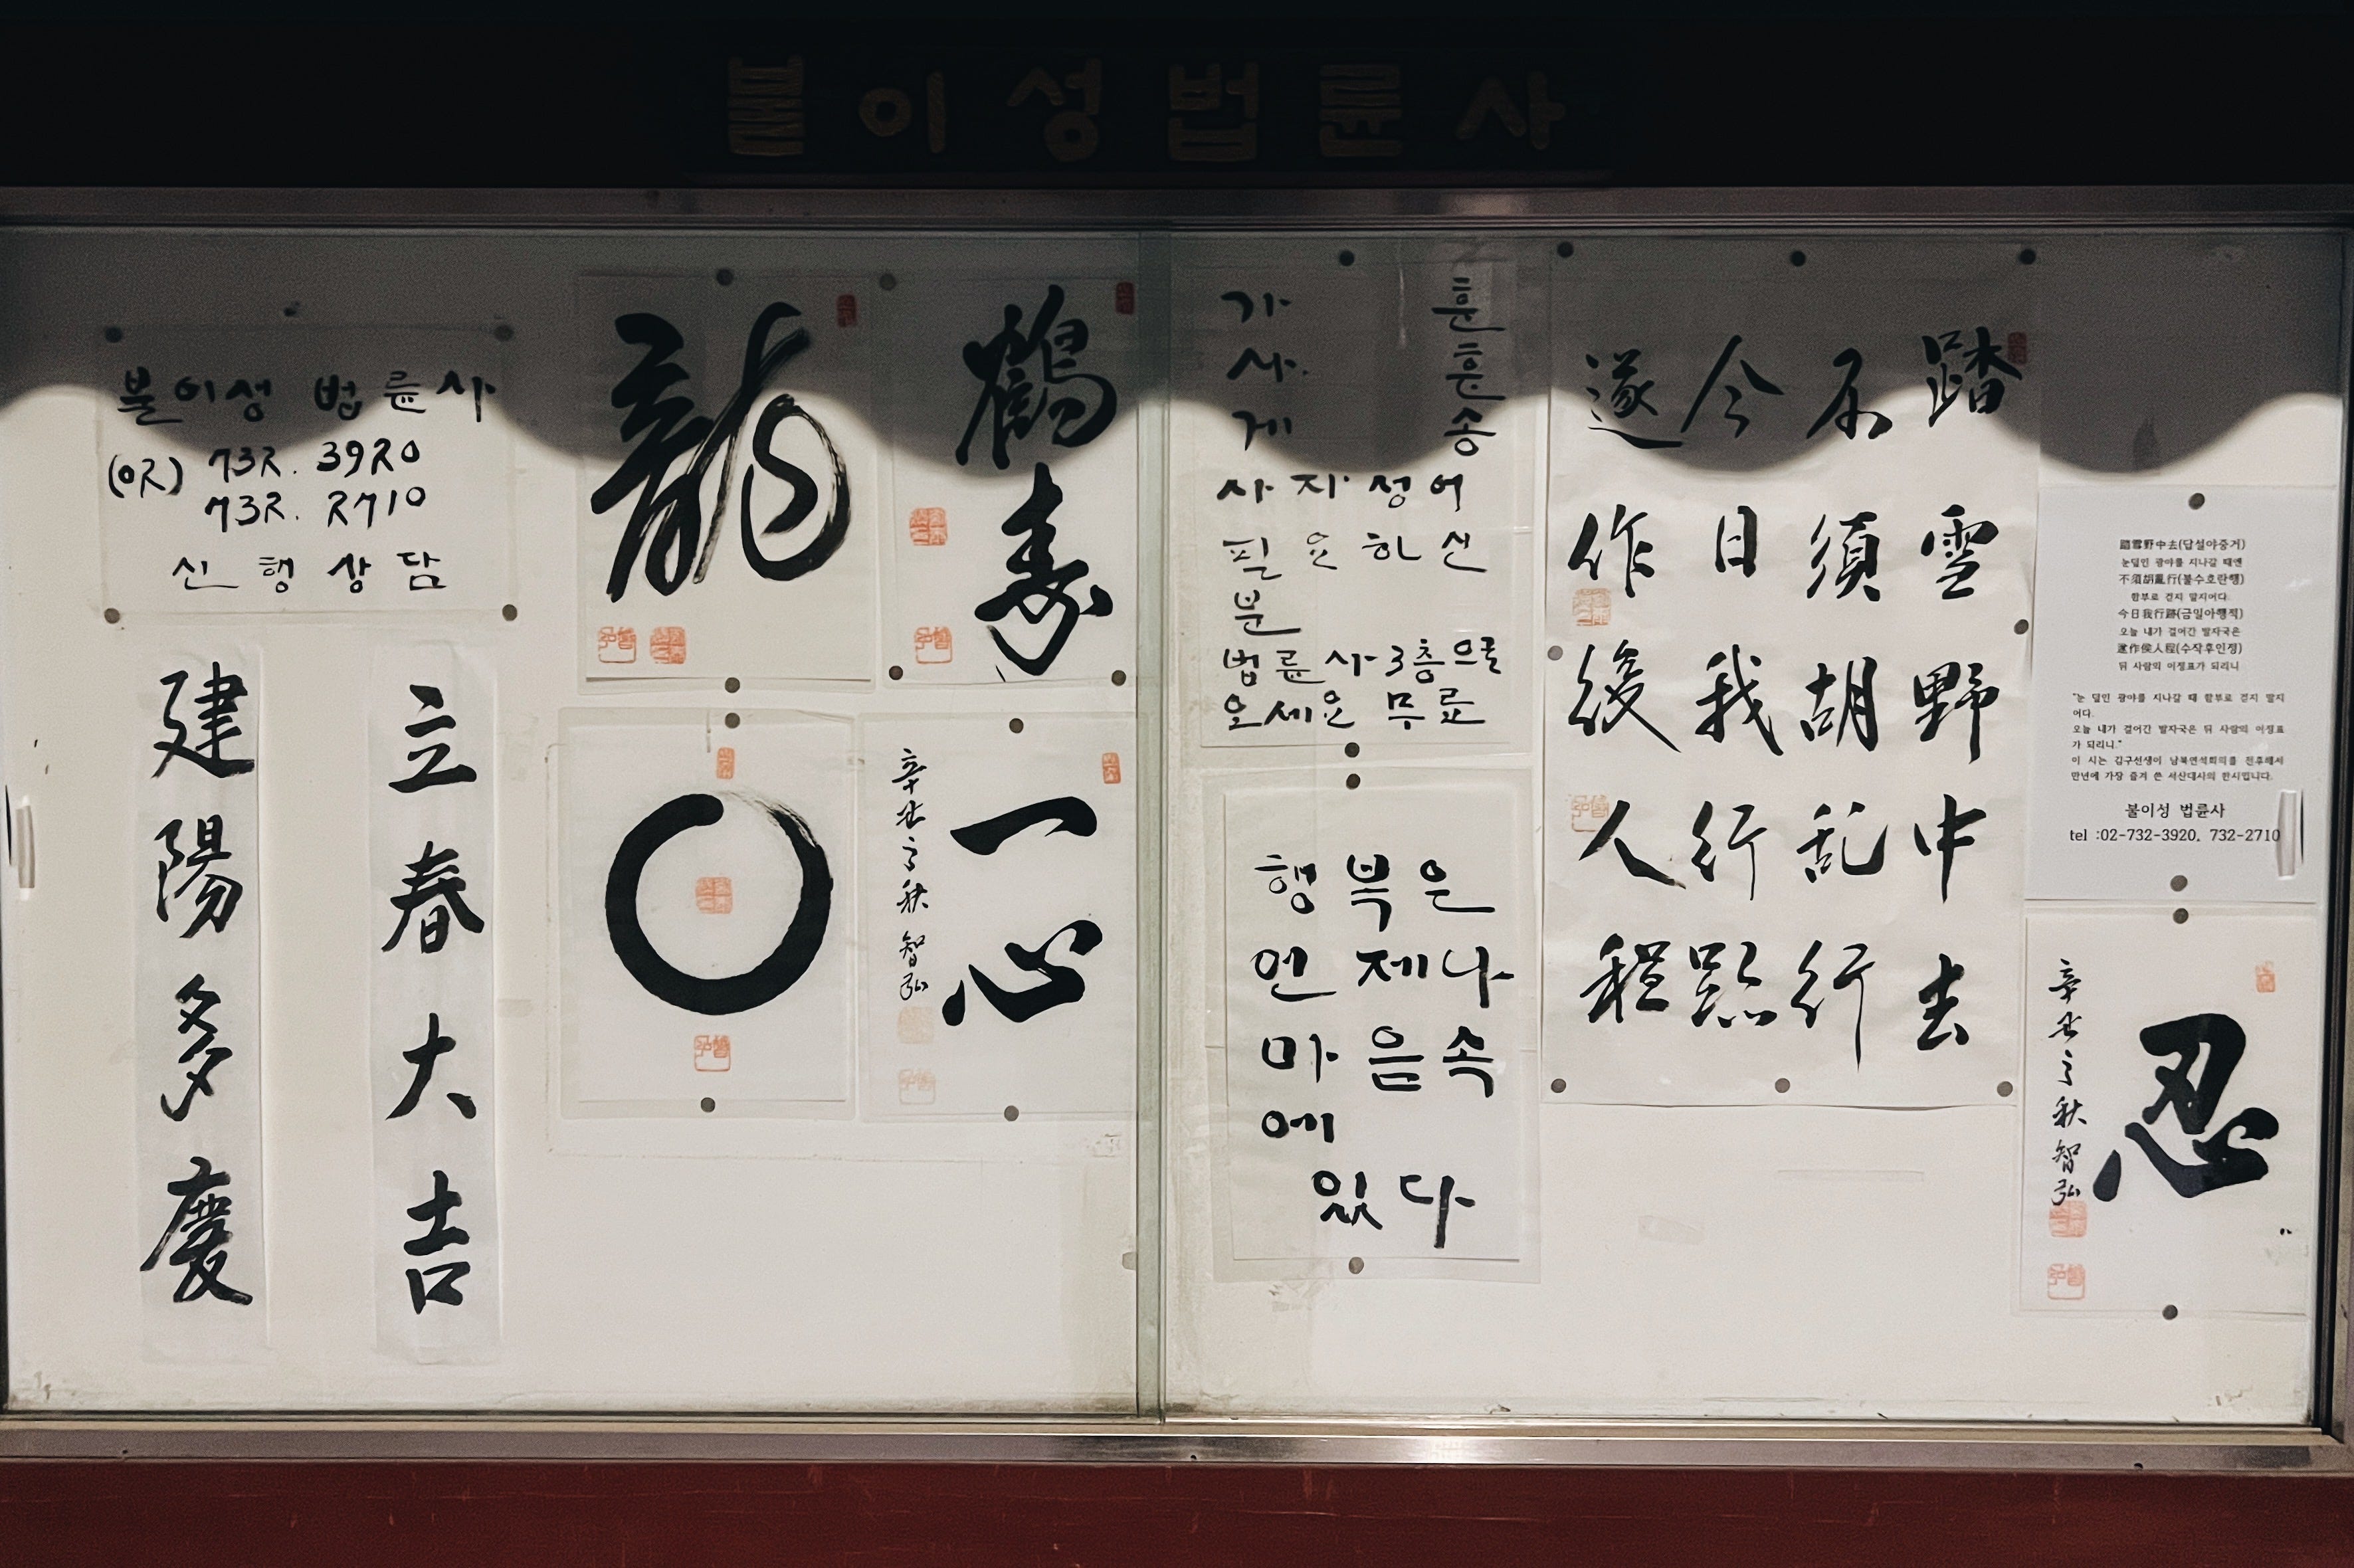 불이성법륜사
불이성 법륜사
(02) 732. 3920
732. 2710
신행상담
立春大吉
建陽多慶
龍
鶴壽
一心
辛丑 秋 智弘
가훈
사훈
게송
사자성어
필요하신
분
법륜사 3층으로
오세요 무료
행복은
언제나
마음속
에
있다
踏雪野中去
不須胡乱行
今日我行
遂作後人程
踏雪野中去(답설야중거)
눈덮인 광야를 지나갈 때엔
不須胡亂行(불수호란행)
함부로 걷지 말지어다.
今日我行跡(금일아행적)
오늘 내가 걸어간 발자국은
遂作侯人程(수작후인정)
뒤 사람의 이정표가 되리니
"눈 덮인 광야를 지나갈 때 함부로 걷지 말지
어다.
오늘 내가 걸어간 발자국은 뒤 사람의 이정표
가 되리니."
이 시는 김구선생이 남북연석회의를 전후해서
만년에 가장 즐겨 쓴 서산대사의 한시입니다.
불이성 법륜사
tel :02-732-3920, 732-2710
忍
辛丑 秋 智弘